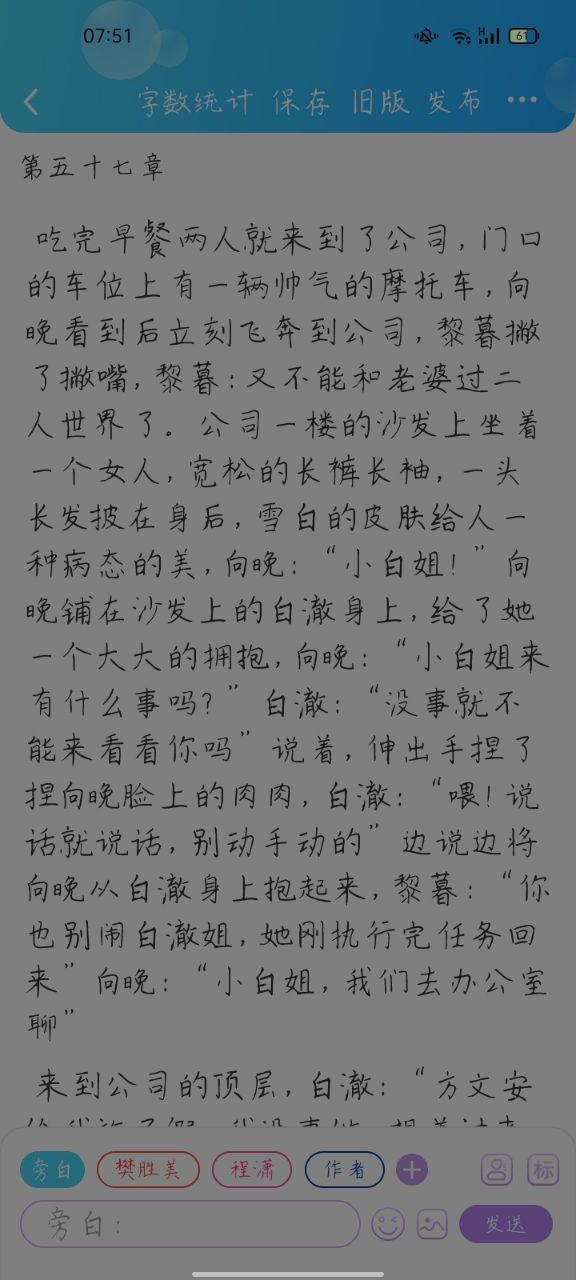 07:51
61
字数统计 保存 旧版 发布
第五十七章
吃完早餐两人就来到了公司，门口
的车位上有一辆帅气的摩托车，向
晚看到后立刻飞奔到公司，黎暮撇
了撇嘴，黎暮：又不能和老婆过二
人世界了。公司一楼的沙发上坐着
一个女人，宽松的长裤长袖，一头
长发披在身后，雪白的皮肤给人一
种病态的美，向晚：“小白姐！”向
晚铺在沙发上的白澈身上，给了她
一个大大的拥抱，向晚：“小白姐来
有什么事吗？”白澈：“没事就不
能来看看你吗”说着，伸出手捏了
捏向晚脸上的肉肉，白澈：“喂！说
话就说话，别动手动的”边说边将
向晚从白澈身上抱起来，黎暮：“你
也别闹白澈姐，她刚执行完任务回
来”向晚：“小白姐，我们去办公室
聊”
来到公司的顶层，白澈：“方文安
旁白 樊胜美 程潇 作者 标
旁白： 发送